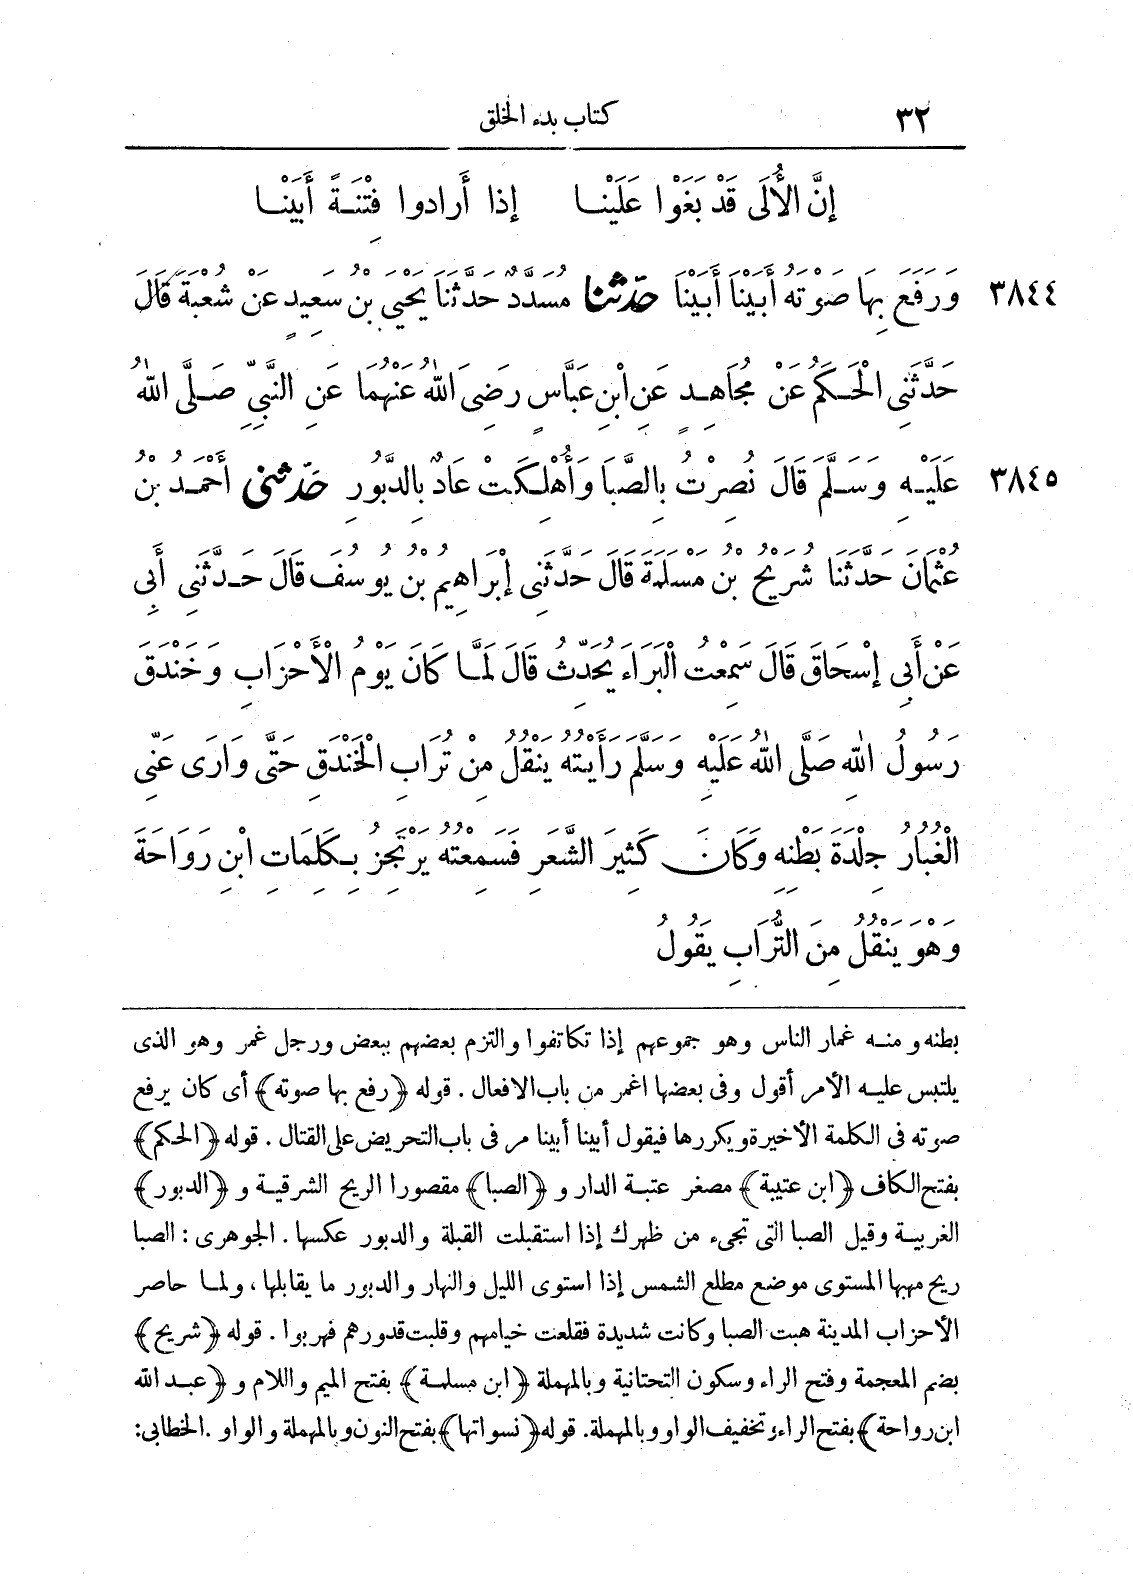 ٣٢ كتاب بدء الخلق
إِنَّ الْأُلَى قَدْ بَغَوْا عَلَيْنَا إِذَا أَرَادُوا فِتْنَةً أَبَيْنَا
٣٨٤٤ وَرَفَعَ بِهَا صَوْتَهُ أَبَيْنَا أَبَيْنَا حَدَّثَنَا مُسَدَّدٌ حَدَّثَنَا يَحْيَى بْنُ سَعِيدٍ عَنْ شُعْبَةَ قَالَ
حَدَّثَنِي الْحَكَمُ عَنْ مُجَاهِدٍ عَنِ ابْنِ عَبَّاسٍ رَضِىَ اللهُ عَنْهُمَا عَنِ النَّبِيِّ صَلَّى اللهُ
٣٨٤٥ عَلَيْهِ وَسَلَّمَ قَالَ نُصِرْتُ بِالصَّبَا وَأُهْلِكَتْ عَادٌ بِالدَّبُورِ حَدَّثَنِى أَحْمَدُ بْنُ
عُثْمَانَ حَدَّثَنَا شُرَيْحُ بْنُ مَسْلَمَةَ قَالَ حَدَّثَنِى إِبْرَاهِيمُ بْنُ يُوسُفَ قَالَ حَدَّثَنِي أَبِى
عَنْ أَبِى إِسْحَاقَ قَالَ سَمِعْتُ الْبَرَاءَ يُحَدِّثُ قَالَ لَمَّا كَانَ يَوْمُ الْأَحْزَابِ وَخَنْدَقَ
رَسُولُ اللهِ صَلَّى اللهُ عَلَيْهِ وَسَلَّمَ رَأَيْتُهُ يَنْقُلُ مِنْ تُرَابِ الْخَنْدَقِ حَتَّى وَارَى عَنِّى
الْغُبَارُ جِلْدَةَ بَطْنِهِ وَكَانَ كَثِيرَ الشَّعَرِ فَسَمِعْتُهُ يَرْتَجِزُ بِكَلِمَاتِ ابْنِ رَوَاحَةَ
وَهْوَ يَنْقُلُ مِنَ التُّرَابِ يَقُولُ
بطنه ومنه غمار الناس وهو جموعهم إذا تكاتفوا والتزم بعضهم ببعض ورجل غمر وهو الذى
يلتبس عليه الأمر أقول وفى بعضها اغمر من باب الافعال. قوله ﴿رفع بها صوته﴾ أى كان يرفع
صوته فى الكلمة الأخيرة ويكررها فيقول أبينا أبينا مر فى باب التحريض على القتال. قوله ﴿الحكم﴾
بفتح الكاف ﴿ابن عتيبة﴾ مصغر عتبة الدار و ﴿الصبا﴾ مقصورا الريح الشرقية و ﴿الدبور﴾
الغربية وقيل الصبا التى تجىء من ظهرك إذا استقبلت القبلة والدبور عكسها. الجوهرى: الصبا
ريح مهبها المستوى موضع مطلع الشمس إذا استوى الليل والنهار والدبور ما يقابلها، ولما حاصر
الأحزاب المدينة هبت الصبا وكانت شديدة فقلعت خيامهم وقلبت قدورهم فهربوا. قوله ﴿شريح﴾
بضم المعجمة وفتح الراء وسكون التحتانية وبالمهملة ﴿ابن مسلمة﴾ بفتح الميم واللام و ﴿عبد الله
ابن رواحة﴾ بفتح الراء وتخفيف الواو وبالمهملة. قوله ﴿نسواتها﴾ بفتح النون وبالمهملة والواو. الخطابى: